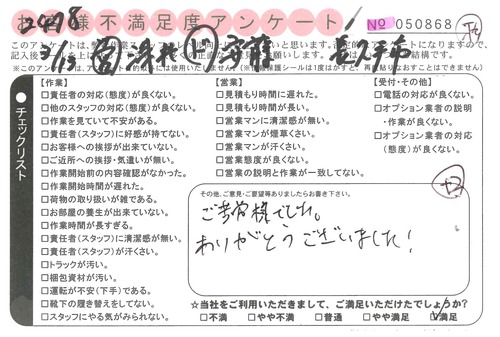 お客様不満足度アンケート
No 050868
2498
3/13
長久手市
チェックリスト
【作業】
□責任者の対応(態度)が良くない。
□他のスタッフの対応(態度)が良くない。
□作業を見ていて不安がある。
□責任者(スタッフ)に好感が持てない。
□お客様への挨拶が出来ていない。
□ご近所への挨拶・気遣いが無い。
□作業開始前の内容確認がなかった。
□作業開始時間が遅れた。
□荷物の取り扱いが雑である。
□お部屋の養生が出来ていない。
□作業時間が長すぎる。
□責任者(スタッフ)に清潔感が無い。
□責任者(スタッフ)が汗くさい。
□トラックが汚い。
□梱包資材が汚い。
□運転が不安(下手)である。
□靴下の履き替えをしてない。
□スタッフにやる気がみられない。
【営業】
□見積もり時間に遅れた。
□見積もり時間が長い。
□営業マンに清潔感が無い。
□営業マンが煙草くさい。
□営業マンが汗くさい。
□営業態度が良くない。
□営業の説明と作業が一致してない。
【受付・その他】
□電話の対応が良くない。
□オプション業者の説明
・作業が良くない。
□オプション業者の対応
(態度)が良くない。
その他、ご意見・ご要望等ありましたらお書き下さい。
ご苦労様でした。
ありがとうございました!
☆当社をご利用いただきまして、ご満足いただけたでしょうか?
□不満 □やや不満 □普通 □やや満足 ☑満足